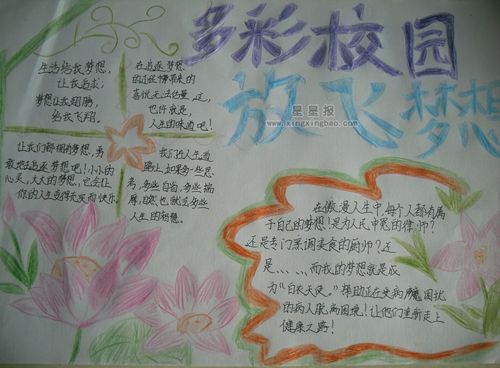 多彩校园
放飞梦想
星星报
www.ixingxingbao.com
生活给我梦想,
让我追求;
梦想让我翅膀,
给我飞翔。
在追逐梦想
的过程带来的
喜悦无法估量。这,
也许就是,
人生的味道吧!
让我们都拥有梦想,勇
敢地去追逐梦想吧!小小的
心灵,大大的梦想,它会让
你的人生变得充实而快乐。
我们在人生道
路上,如果多一些思
考,多些自省,多些揣
摩,自然也就会多些
人生的把握。
在浪漫人生中,每个人都有属
于自己的梦想!是为人民申冤的律师?
还是专门烹调美食的厨师?还
是、、、、、而我的梦想就是成
为“白衣天使。”帮助正在受病魔困扰
的病人脱离困境!让他们重新走上
健康之路!